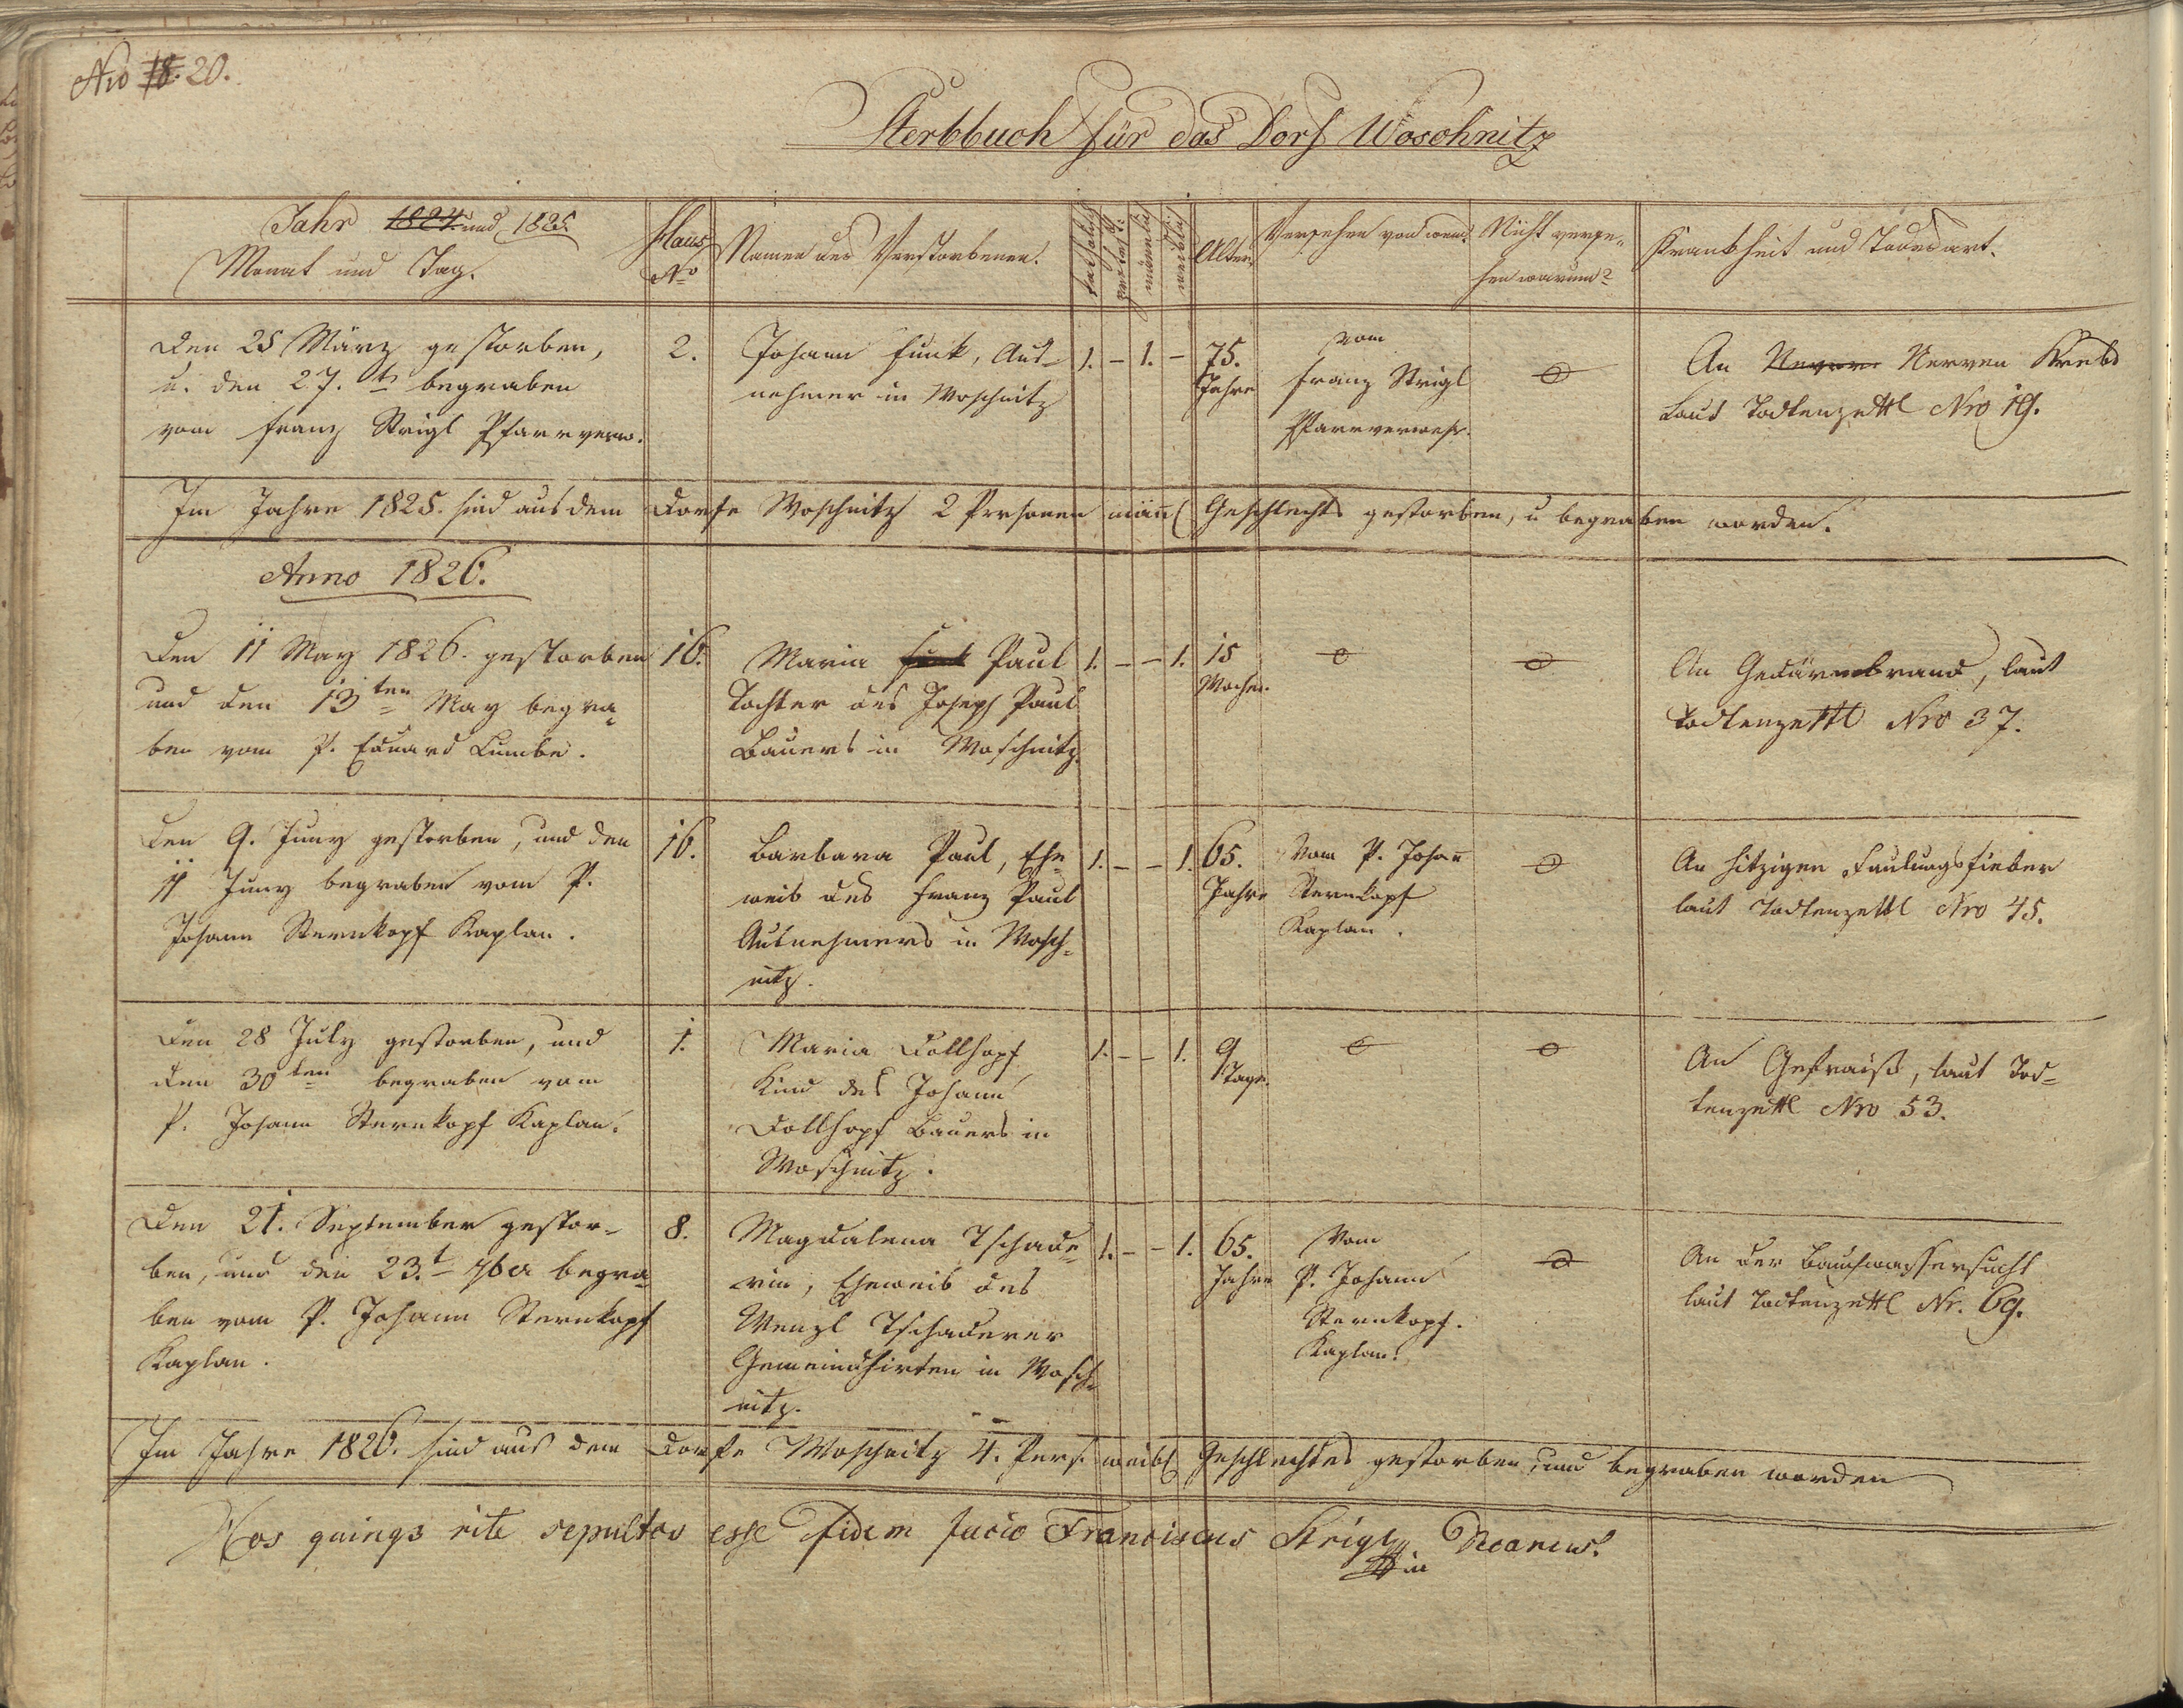 Nro 18. 20.
Sterbbuch für das Dorf Woschnitz
Jahr 1824 und 1825.
Monat und Tag.
Haus
No
Namen des Verstorbenen.
katholisch
protest:
männlich
weiblich
Alter
Versehen von wem?
Nicht verse-
hen warum?
Krankheit und Todesart.
Den 25 März gestorben,
u. den 27.t begraben
vom Franz Strigl Pfarrverw.
2.
Johann Funk, Aus-
nehmer in Woschnitz
1. – 1. –
75.
Jahre
vom
Franz Strigl
Pfarrverwes.
An Nerven Krebs
Laut Todtenzettl Nro 19.
Im Jahre 1825. sind aus dem Dorfe Woschnitz 2 Personen mänl Geschlechts gestorben, u begraben worden.
Anno 1826.
Den 11 May 1826. gestorben
und den 13ten May begra-
ben vom P. Eduard Lumbe.
16.
Maria Paul
Tochter des Joseph Paul
Bauers in Woschnitz.
1. – – 1.
15
Wochen.
An Gedärmbrand, laut
Todtenzettl Nro 37.
Den 9. Juny gestorben, und den
11 Juny begraben vom P.
Johann Sternkopf Kaplan.
16.
Barbara Paul, Ehe-
weib des Franz Paul
Ausnehmers in Wosch-
nitz.
1. – – 1.
65.
Jahre
Vom P. Johann
Sternkopf
Kaplan.
An hitzigen Faulungsfieber
laut Todtenzettl Nro 45.
Den 28 July gestorben, und
den 30ten begraben vom
P. Johann Sternkopf Kaplan.
1.
Maria Dollhopf
Kind des Johann
Dollhopf Bauers in
Woschnitz.
1. – – 1.
9
Tage.
An Gefraiß, laut Tod-
tenzettl Nro 53.
Den 21. September gestor-
ben, und den 23.t 7ber begra-
ben vom P. Johann Sternkopf
Kaplan.
8.
Magdalena Tschade-
rin, Eheweib des
Wenzl Tschaderer
Gemeindhirten in Wosch-
nitz.
1. – – 1.
65.
Jahre
Vom
P. Johann
Sternkopf.
Kaplan.
An der Bauchwassersucht
laut Todtenzettl Nr. 69.
Im Jahre 1826. sind aus dem Dorfe Woschnitz 4. Pers. weibl Geschlechtes gestorben, und begraben worden
Hos quinqs rite sepultos esse fidem facio Franciscus Strigl Decanus.